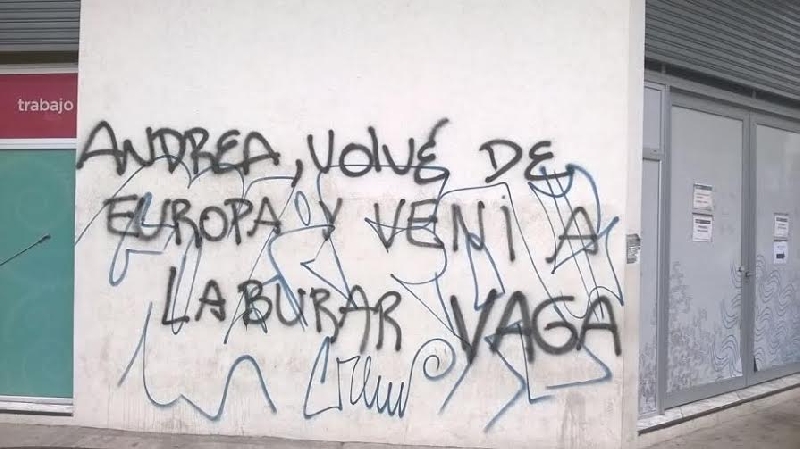 trabajo
ANDREA, VOLVÉ DE
EUROPA Y VENI A
LABURAR VAGA